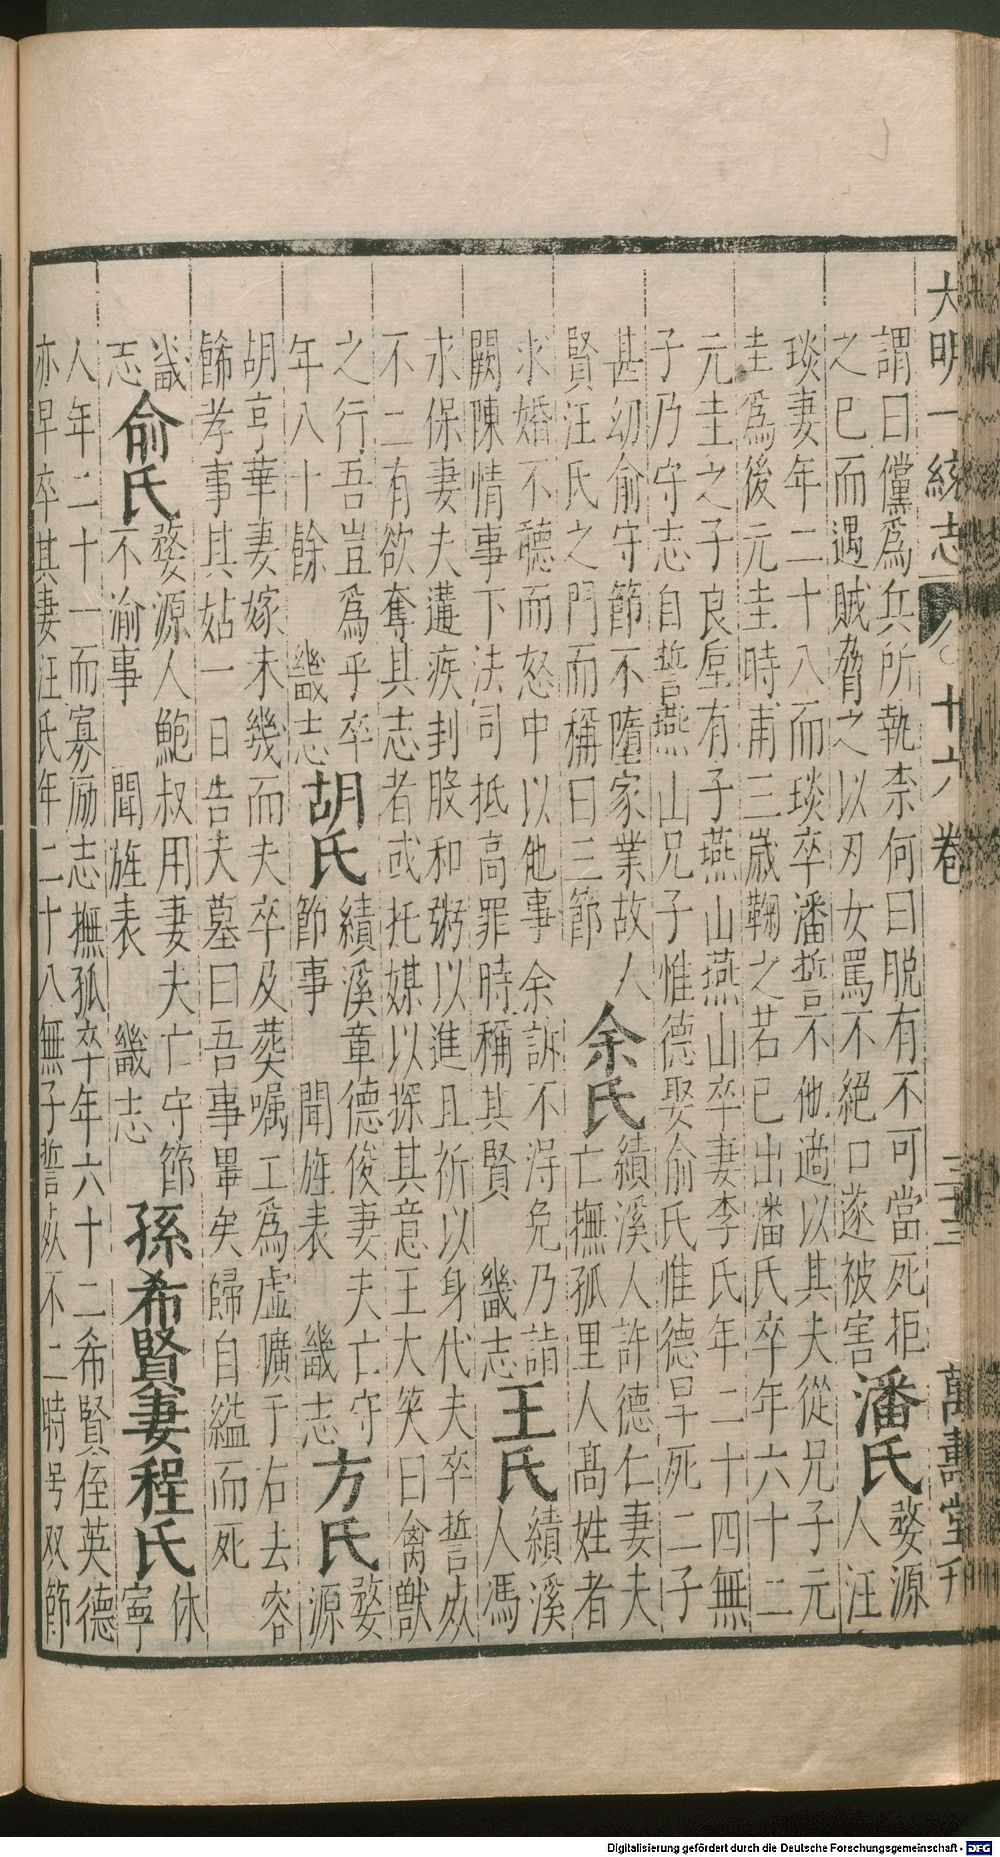 大明一統志 八十六卷 萬壽堂刊
謂曰儻爲兵所執柰何曰脫有不可當死拒
之巳而遇賊脅之以刃女罵不絕口遂被害
潘氏
婺源
人汪
琰妻年二十八而琰卒潘誓不他適以其夫從兄子元
圭爲後元圭時甫三歲鞠之若巳出潘氏卒年六十二
元圭之子良垕有子燕山燕山卒妻李氏年二十四無
子乃守志自誓燕山兄子惟德娶俞氏惟德早死二子
甚幼俞守節不墮家業故人
賢汪氏之門而稱曰三節
余氏
績溪人許德仁妻夫
亡撫孤里人高姓者
求婚不聽而怒中以他事余訴不淂免乃詣
闕陳情事下法司抵高罪時稱其賢 畿志
王氏
績溪
人馮
求保妻夫遘疾刲股和粥以進且祈以身代夫卒誓死
不二有欲奪其志者或托媒以探其意王大笑曰禽獸
之行吾豈爲乎卒
年八十餘 畿志
胡氏
績溪章德俊妻夫亡守
節事 聞旌表 畿志
方氏
婺
源
胡亨華妻嫁未幾而夫卒及葬嘱工爲虛壙于右去容
餙孝事其姑一日告夫墓曰吾事畢矣歸自縊而死
畿
志
俞氏
婺源人鮑叔用妻夫亡守節
不渝事 聞旌表 畿志
孫希賢妻程氏
休
寧
人年二十一而寡励志撫孤卒年六十二希賢侄英德
亦早卒其妻汪氏年二十八無子誓死不二時号双節
Digitalisierung gefördert durch die Deutsche Forschungsgemeinschaft - DFG